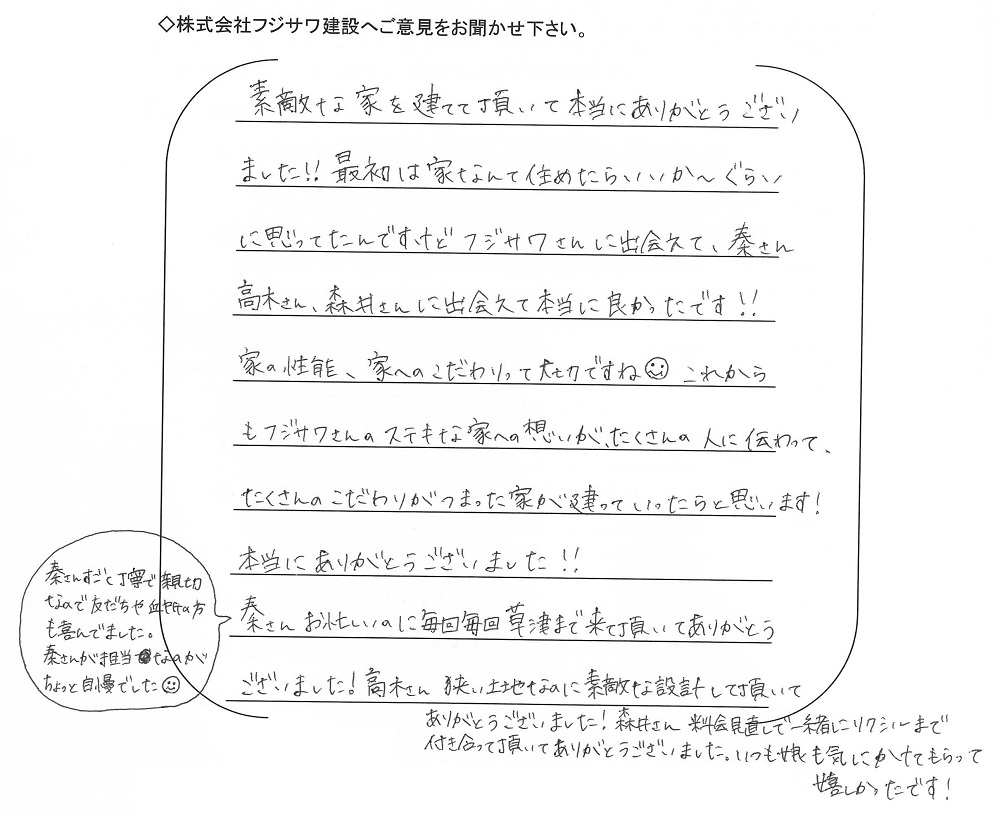 ◇株式会社フジサワ建設へご意見をお聞かせ下さい。
素敵な家を建てて頂いて本当にありがとうござい
ました!! 最初は家なんて住めたらいいか〜ぐらい
に思ってたんですけどフジサワさんに出会えて、秦さん
高木さん、森井さんに出会えて本当に良かったです!!
家の性能、家へのこだわりって大切ですね☺ これから
もフジサワさんのステキな家への想いが、たくさんの人に伝わって、
たくさんのこだわりがつまった家が建っていったらと思います!
本当にありがとうございました!!
秦さんお忙しいのに毎回毎回草津まで来て頂いてありがとう
ございました! 高木さん 狭い土地なのに素敵な設計して頂いて
ありがとうございました! 森井さん 料会見直しで一緒にリクシルまで
付き合って頂いてありがとうございました。いつも娘も気にかけてもらって
嬉しかったです!
秦さんすごく丁寧で親切
なので友だちや の方
も喜んでました。
秦さんが担当なのが
ちょっと自慢でした☺